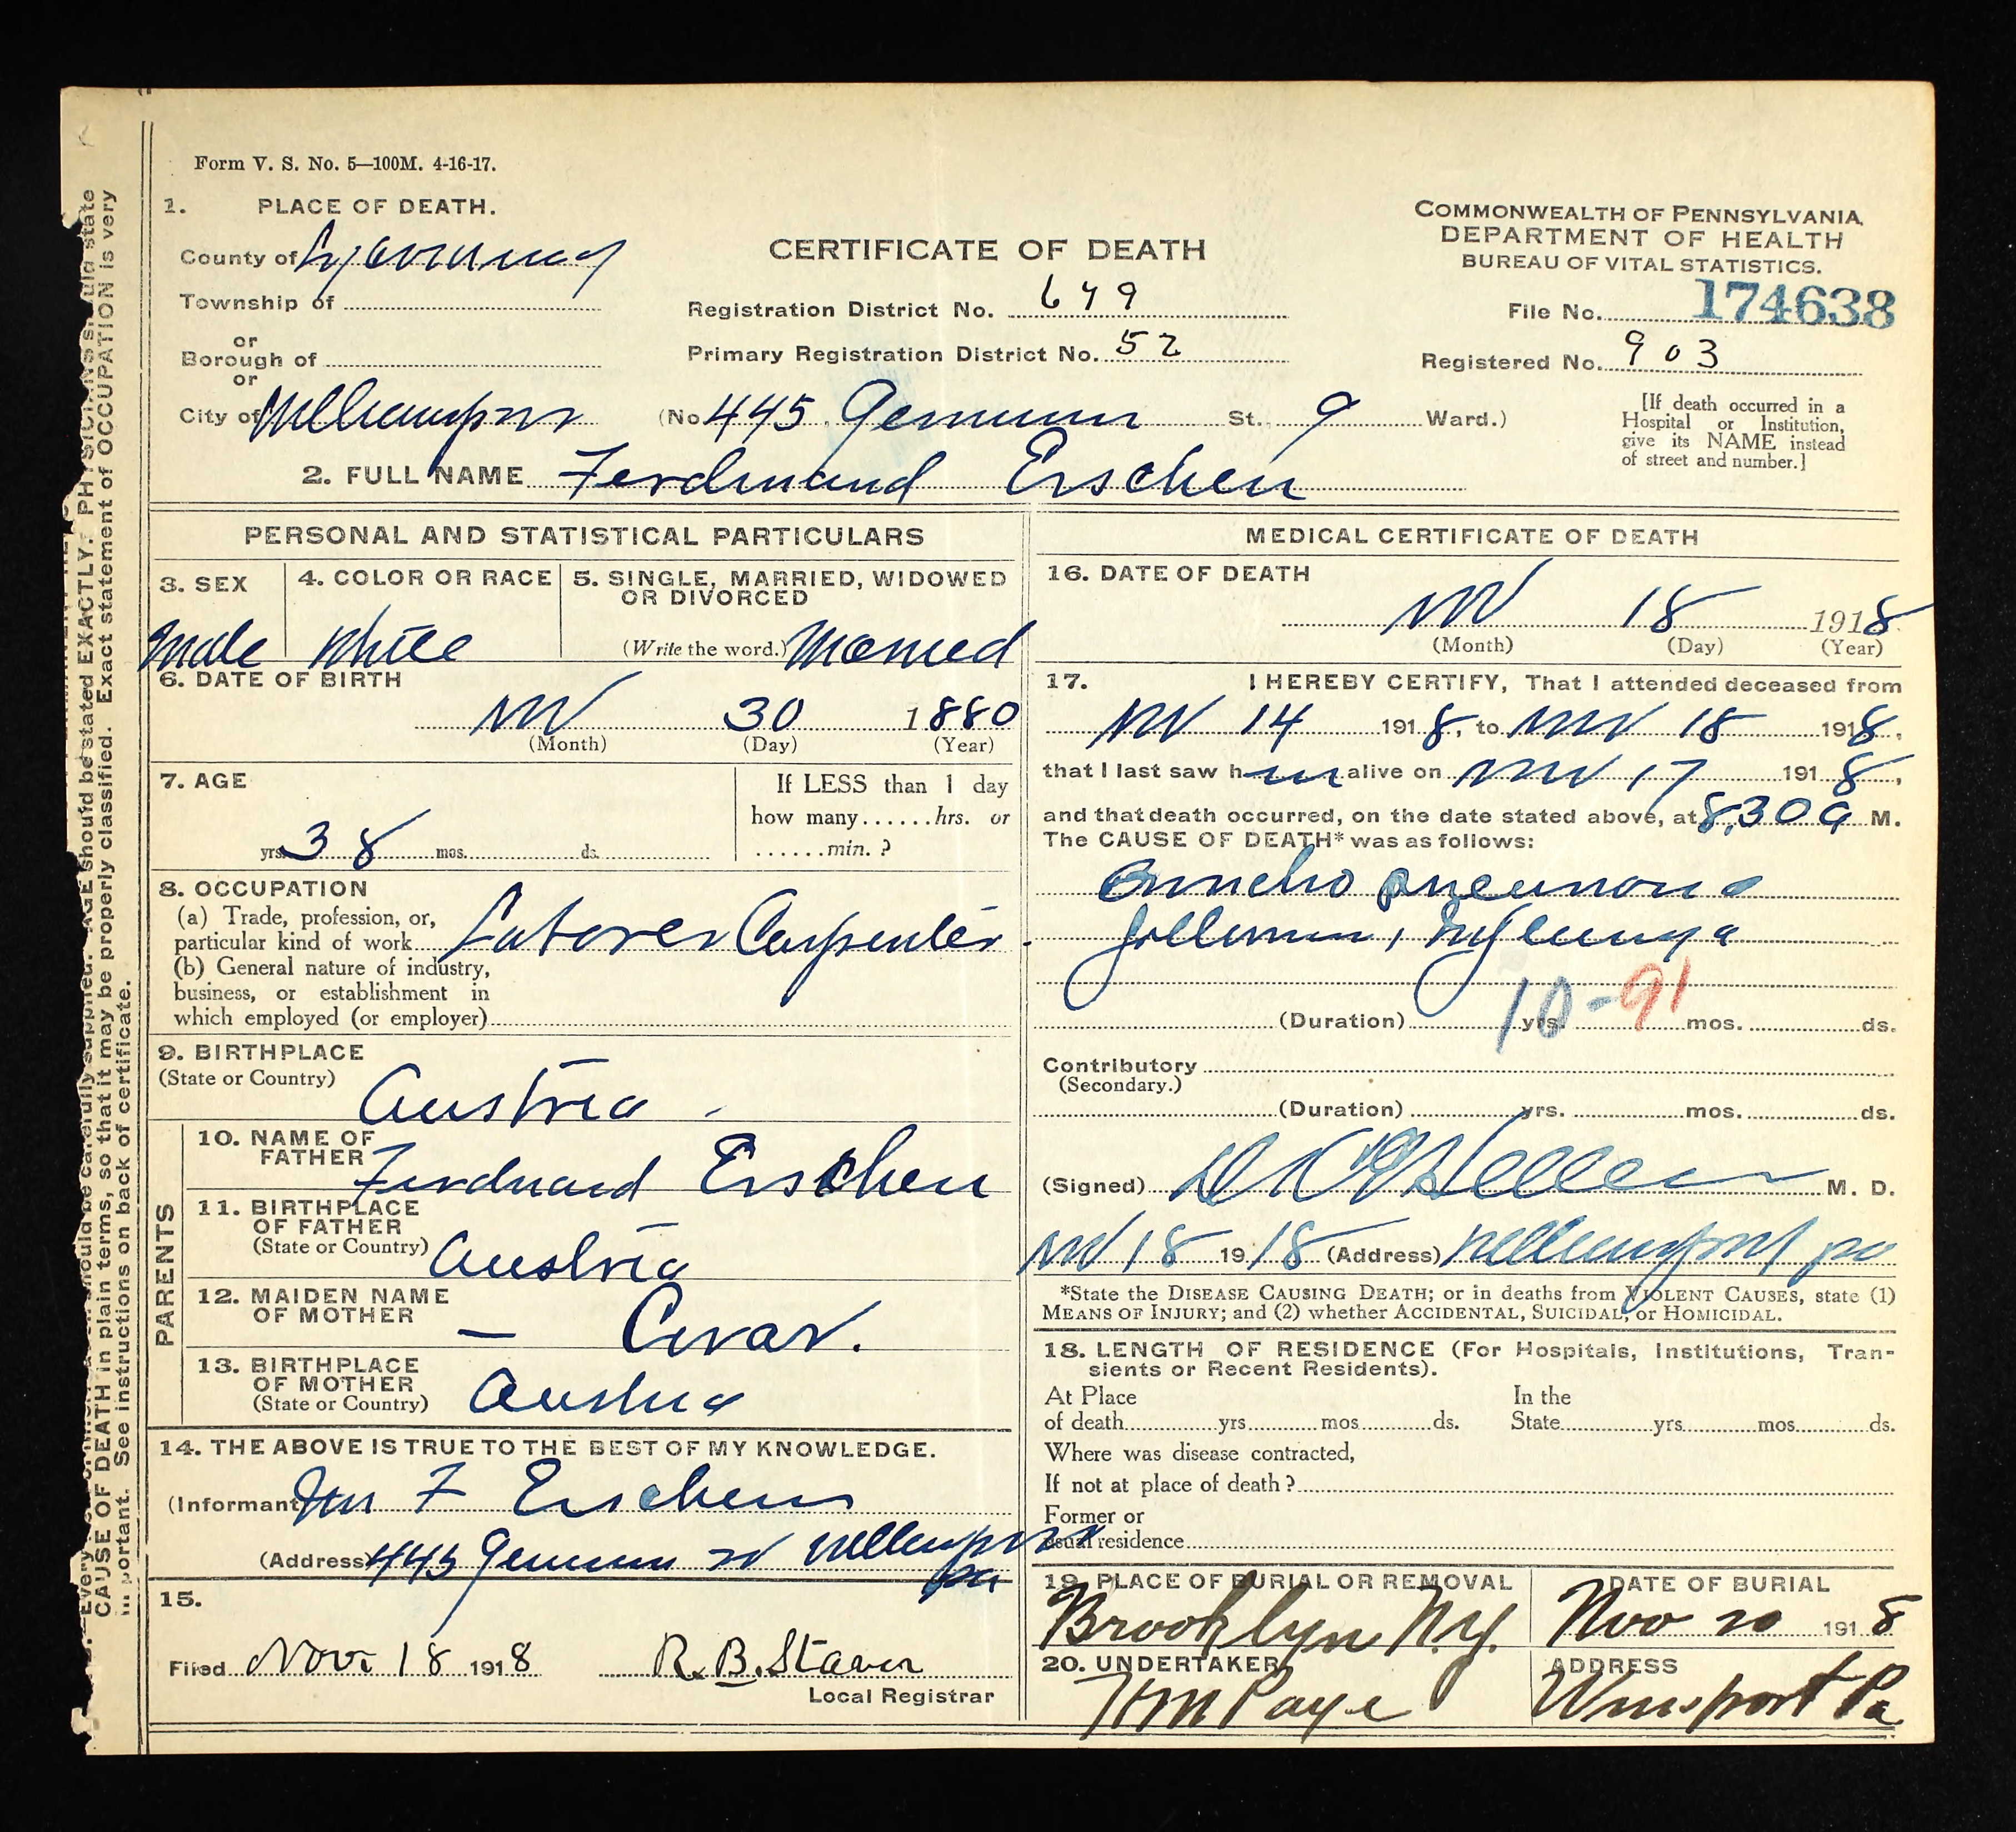 Form V. S. No. 5—100M. 4-16-17.
1. PLACE OF DEATH.
County of Lycoming
Township of
or
Borough of
or
City of Williamsport (No. 445 St., 9 Ward.)
CERTIFICATE OF DEATH
Registration District No. 649
Primary Registration District No. 52
COMMONWEALTH OF PENNSYLVANIA.
DEPARTMENT OF HEALTH
BUREAU OF VITAL STATISTICS.
File No. 174638
Registered No. 903
[If death occurred in a
Hospital or Institution,
give its NAME instead
of street and number.]
2. FULL NAME Ferdinand Erschen
PERSONAL AND STATISTICAL PARTICULARS
3. SEX
Male
4. COLOR OR RACE
White
5. SINGLE, MARRIED, WIDOWED
OR DIVORCED
(Write the word.) Married
6. DATE OF BIRTH
Nov 30 1880
(Month) (Day) (Year)
7. AGE
yrs. 38 mos. ds.
If LESS than 1 day
how many......hrs. or
......min. ?
8. OCCUPATION
(a) Trade, profession, or,
particular kind of work Laborer Carpenter.
(b) General nature of industry,
business, or establishment in
which employed (or employer)
9. BIRTHPLACE
(State or Country)
Austria
PARENTS
10. NAME OF
FATHER
Ferdinand Erschen
11. BIRTHPLACE
OF FATHER
(State or Country) Austria
12. MAIDEN NAME
OF MOTHER —
13. BIRTHPLACE
OF MOTHER
(State or Country) Austria
14. THE ABOVE IS TRUE TO THE BEST OF MY KNOWLEDGE.
(Informant) Mrs F Erschen
(Address) 445 St Williamsport
Pa
15.
Filed Nov. 18 1918 R. B. Staver
Local Registrar
MEDICAL CERTIFICATE OF DEATH
16. DATE OF DEATH
Nov 18 1918
(Month) (Day) (Year)
17. I HEREBY CERTIFY, That I attended deceased from
Nov 14 1918, to Nov 18 1918,
that I last saw him alive on Nov 17 1918,
and that death occurred, on the date stated above, at 8,30 a M.
The CAUSE OF DEATH* was as follows:
Broncho pneumonia
following Influenza
10-91
(Duration) yrs. mos. ds.
Contributory
(Secondary.)
(Duration) yrs. mos. ds.
(Signed) M. D.
Nov 18 1918 (Address) Williamsport Pa
*State the DISEASE CAUSING DEATH; or in deaths from VIOLENT CAUSES, state (1)
MEANS OF INJURY; and (2) whether ACCIDENTAL, SUICIDAL, or HOMICIDAL.
18. LENGTH OF RESIDENCE (For Hospitals, Institutions, Tran-
sients or Recent Residents).
At Place
of death yrs mos ds.
In the
State yrs. mos ds.
Where was disease contracted,
If not at place of death ?
Former or
usual residence
19. PLACE OF BURIAL OR REMOVAL
Brooklyn N.Y.
DATE OF BURIAL
Nov 20 1918
20. UNDERTAKER
Page
ADDRESS
Wmsport Pa
AGE should be stated EXACTLY. PHYSICIANS should state
CAUSE OF DEATH in plain terms, so that it may be properly classified. Exact statement of OCCUPATION is very
important. See instructions on back of certificate.